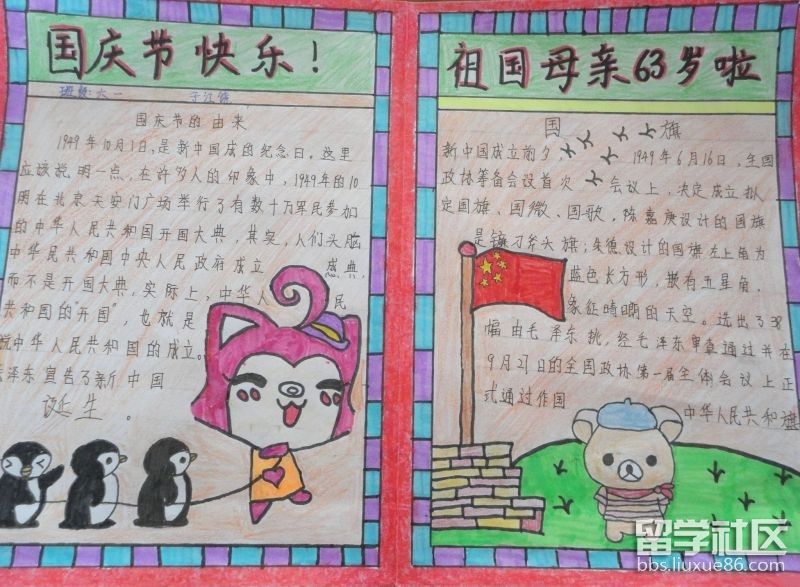 国庆节快乐！
班级：六一
国庆节的由来
1949年10月1日，是新中国成的纪念日。这里
应该说明一点，在许多人的印象中，1949年的10
明在北京天安门广场举行了有数十万军民参加
的中华人民共和国开国大典。其实，人们头脑
中华民共和国中央人民政府成立 盛典，
而不是开国大典，实际上，中华人 民
共和国的“开国”，也就是
中华人民共和国的成立。
泽东宣告了新中国
诞生。
祖国母亲63岁啦
国 旗
新中国成立前夕， 1949年6月16日，全国
政协筹备会议首次 会议上，决定成立拟
定国旗、国徽、国歌，陈嘉庚设计的国旗
是镰刀斧头旗；朱德设计的国旗左上角为
蓝色长方形，嵌有五星角，
象征晴朗的天空。选出了38
幅由毛泽东挑，经毛泽东审查通过并在
9月21日的全国政协第一届全体会议上正
式通过作国 中华人民共和旗
留学社区
bbs.liuxue86.com